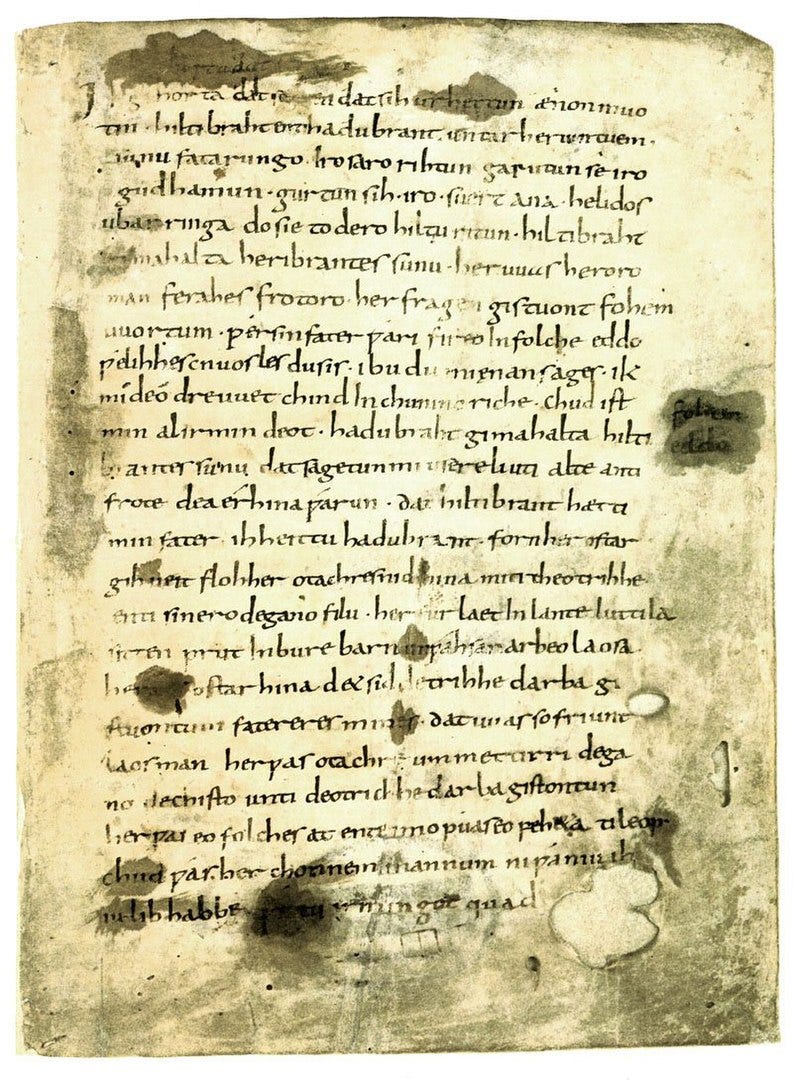 dat dat sih urhettun ænon muo
tin · hiltibraht enti hadubrant · untar heriuntuem ·
sunu fatarungo · iro saro rihtun garutun se iro
gudhamun · gurtun sih · iro · suert ana · helidos
ubar ringa do sie to dero hiltu ritun · hiltibraht
gimahalta heribrantes sunu · her uuas heroro
man ferahes frotoro · her fragen gistuont fohem
uuortum · ƿer sin fater ƿari fireo In folche eddo
ƿelihhes cnuosles du sis · ibu du mi enan sages · ik
mi deodre uuet chind In chunincriche · chud ist
min al irmin deot · hadubraht gimahalta hilti
brantes sunu dat sagetun mi usere liuti alte anti
frote dea erhina ƿarun · dat hiltibrant hætti
min fater · ih heittu hadubrant · forn her ostar
gihueit floh her otachres nid hina miti theotrihhe
enti sinero degano filu · her furlaet In lante luttila
sitten prut In bure barn unƿahsan arbeo laosa
ostar hina d& sid detrihhe darba gi
stuontum fatereres mines · dat uuas so friunt
laos man her ƿas otachre ummettirri dega
no dechisto unti deotrichhe darba gistontun
her ƿas eo folches at ente imo ƿuas eo peh&a ti leop
chud ƿas her chonnem mannum ni ƿaniu ih
iu lib habbe irmingot quad